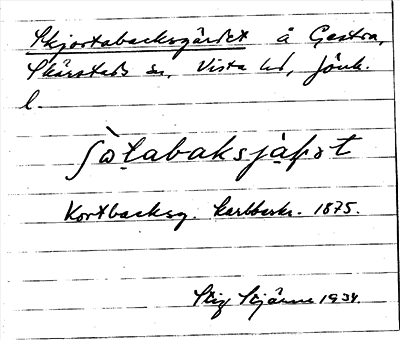 Skjortabacksgärdet å Gestra,
Skärstads sn, Vista hd, Jönk.
l.
ʃòtabaksjạpɔt
Kortbacksg. Karlborks. 1875.
Stig Stjärne 1934.